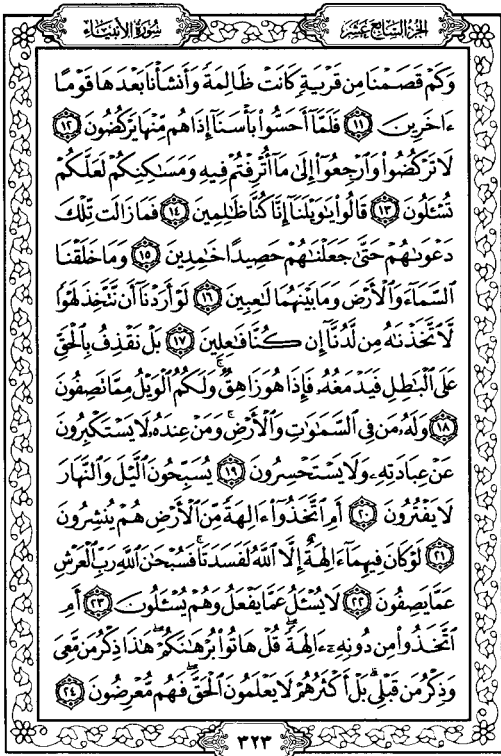 سُورَةُ الأَنبِيَاءِ
الجُزْءُ السَّابِعُ عَشَرَ
وَكَمْ قَصَمْنَا مِن قَرْيَةٍ كَانَتْ ظَالِمَةً وَأَنشَأْنَا بَعْدَهَا قَوْمًا
ءَاخَرِينَ ١١ فَلَمَّآ أَحَسُّوا۟ بَأْسَنَآ إِذَا هُم مِّنْهَا يَرْكُضُونَ ١٢
لَا تَرْكُضُوا۟ وَٱرْجِعُوٓا۟ إِلَىٰ مَآ أُتْرِفْتُمْ فِيهِ وَمَسَٰكِنِكُمْ لَعَلَّكُمْ
تُسْـَٔلُونَ ١٣ قَالُوا۟ يَٰوَيْلَنَآ إِنَّا كُنَّا ظَٰلِمِينَ ١٤ فَمَا زَالَت تِّلْكَ
دَعْوَىٰهُمْ حَتَّىٰ جَعَلْنَٰهُمْ حَصِيدًا خَٰمِدِينَ ١٥ وَمَا خَلَقْنَا
ٱلسَّمَآءَ وَٱلْأَرْضَ وَمَا بَيْنَهُمَا لَٰعِبِينَ ١٦ لَوْ أَرَدْنَآ أَن نَّتَّخِذَ لَهْوًا
لَّٱتَّخَذْنَٰهُ مِن لَّدُنَّآ إِن كُنَّا فَٰعِلِينَ ١٧ بَلْ نَقْذِفُ بِٱلْحَقِّ
عَلَى ٱلْبَٰطِلِ فَيَدْمَغُهُۥ فَإِذَا هُوَ زَاهِقٌ ۚ وَلَكُمُ ٱلْوَيْلُ مِمَّا تَصِفُونَ
١٨ وَلَهُۥ مَن فِى ٱلسَّمَٰوَٰتِ وَٱلْأَرْضِ ۚ وَمَنْ عِندَهُۥ لَا يَسْتَكْبِرُونَ
عَنْ عِبَادَتِهِۦ وَلَا يَسْتَحْسِرُونَ ١٩ يُسَبِّحُونَ ٱلَّيْلَ وَٱلنَّهَارَ
لَا يَفْتُرُونَ ٢٠ أَمِ ٱتَّخَذُوٓا۟ ءَالِهَةً مِّنَ ٱلْأَرْضِ هُمْ يُنشِرُونَ
٢١ لَوْ كَانَ فِيهِمَآ ءَالِهَةٌ إِلَّا ٱللَّهُ لَفَسَدَتَا ۚ فَسُبْحَٰنَ ٱللَّهِ رَبِّ ٱلْعَرْشِ
عَمَّا يَصِفُونَ ٢٢ لَا يُسْـَٔلُ عَمَّا يَفْعَلُ وَهُمْ يُسْـَٔلُونَ ٢٣ أَمِ
ٱتَّخَذُوا۟ مِن دُونِهِۦٓ ءَالِهَةً ۖ قُلْ هَاتُوا۟ بُرْهَٰنَكُمْ ۖ هَٰذَا ذِكْرُ مَن مَّعِىَ
وَذِكْرُ مَن قَبْلِى ۗ بَلْ أَكْثَرُهُمْ لَا يَعْلَمُونَ ٱلْحَقَّ ۖ فَهُم مُّعْرِضُونَ ٢٤
٣٢٣